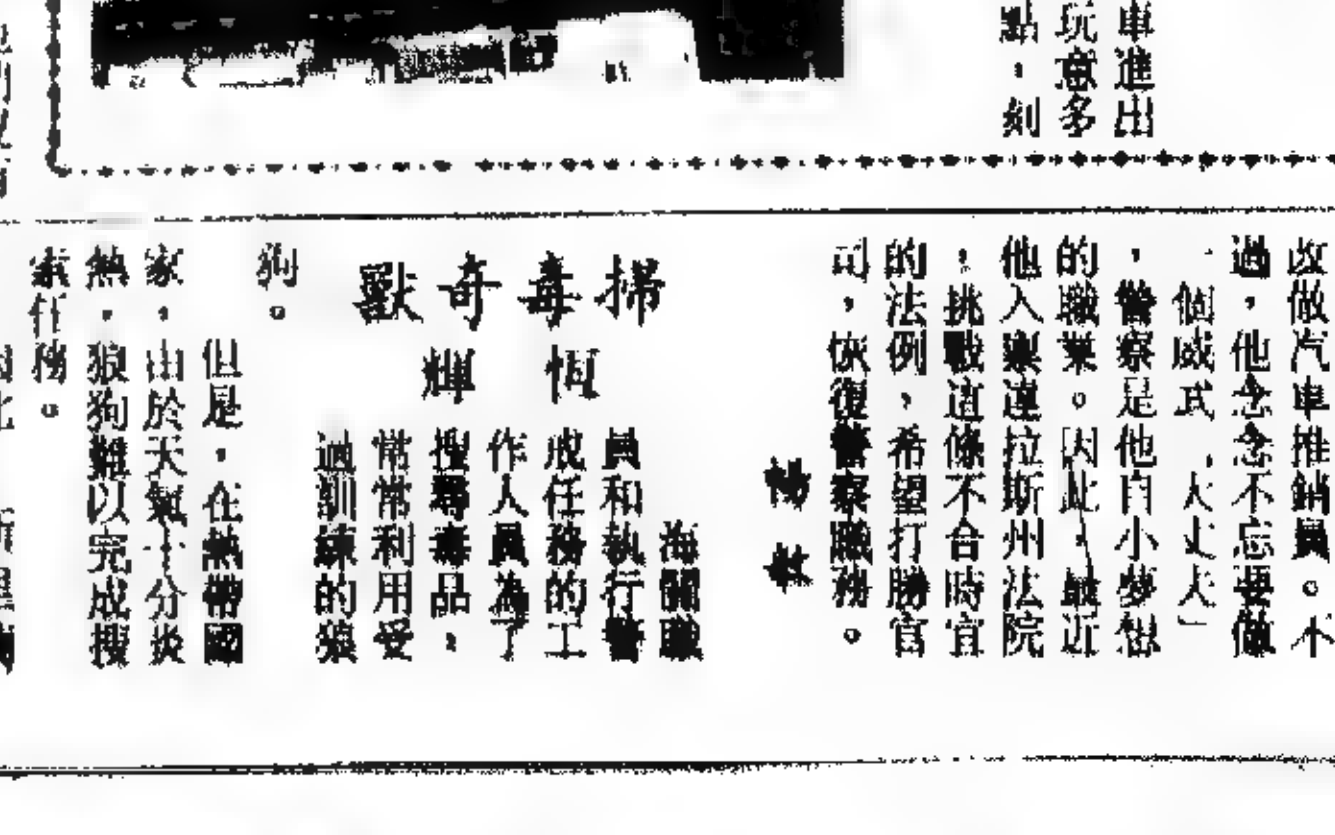 車進出
玩意多
點，刻
改做汽車推銷員。不
過，他念念不忘要做
一個威武「大丈夫」
，警察是他自小夢想
的職業。因此，最近
他入稟達拉斯州法院
，挑戰這條不合時宜
的法例，希望打勝官
司，恢復警察職務。
楊敏
掃毒奇獸
恆輝
海關職
員和執行警
戒任務的工
作人員為了
搜尋毒品，
常常利用受
過訓練的狼
狗。
但是，在熱帶國
家，由於天氣十分炎
熱，狼狗難以完成搜
索任務。